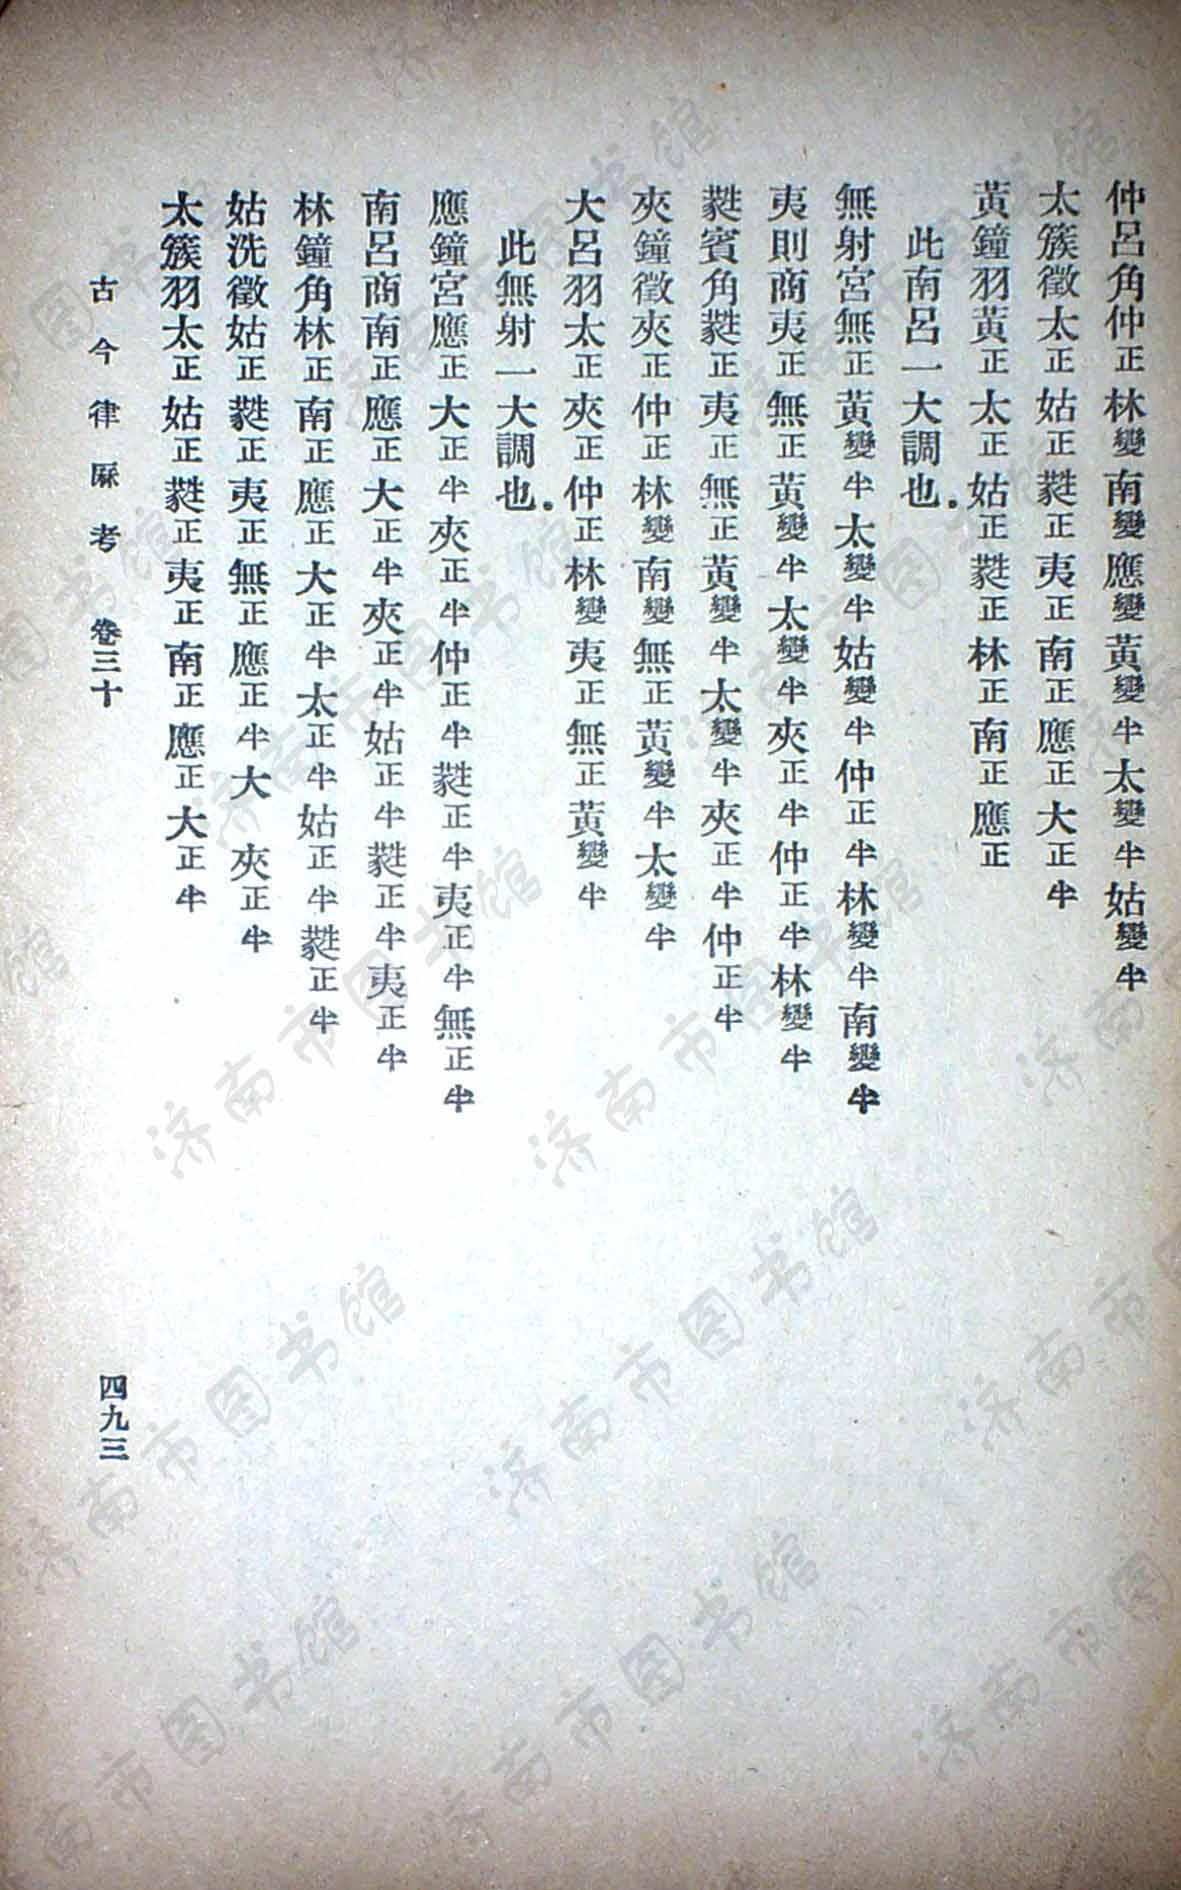 仲呂角仲正林變南變應變黃變半太變半姑變半
太簇徵太正姑正蕤正夷正南正應正大正半
黃鐘羽黃正太正姑正蕤正林正南正應正
此南呂一大調也.
無射宮無正黃變半太變半姑變半仲正半林變半南變半
夷則商夷正無正黃變半太變半夾正半仲正半林變半
蕤賓角蕤正夷正無正黃變半太變半夾正半仲正半
夾鐘徵夾正仲正林變南變無正黃變半太變半
大呂羽太正夾正仲正林變夷正無正黃變半
此無射一大調也.
應鐘宮應正大正半夾正半仲正半蕤正半夷正半無正半
南呂商南正應正大正半夾正半姑正半蕤正半夷正半
林鐘角林正南正應正大正半太正半姑正半蕤正半
姑洗徵姑正蕤正夷正無正應正半大夾正半
太簇羽太正姑正蕤正夷正南正應正大正半
古今律厤考 卷三十 四九三
济南市图书馆
济南市图书馆
济南市图书馆
济南市图书馆
济南市图书馆
济南市图书馆